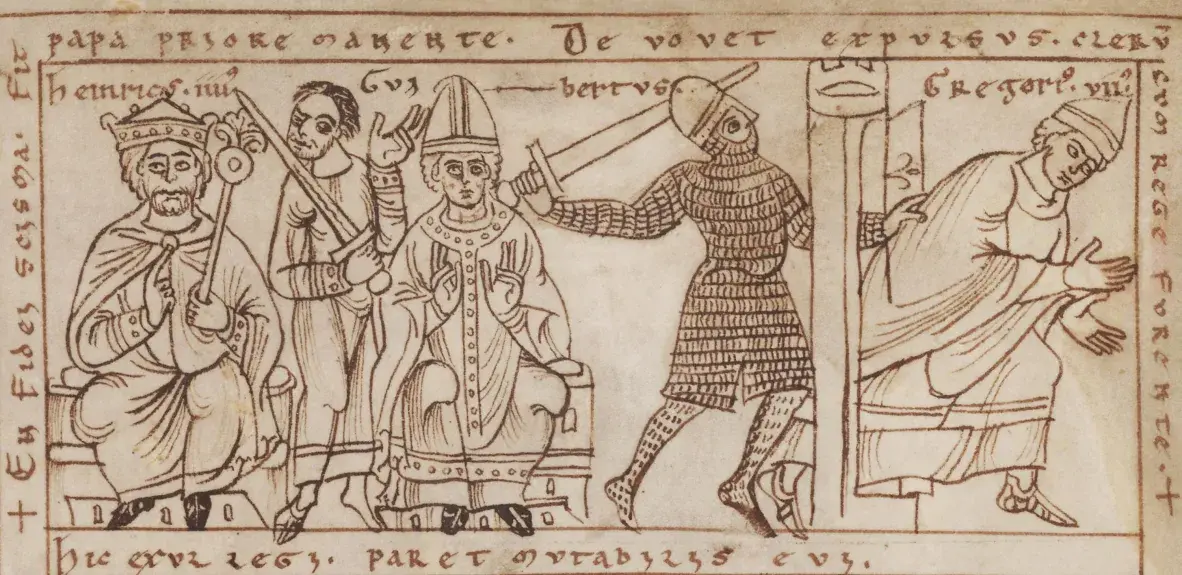 + En fides scisma. fit
papa priore manente. De vovet expulsus. clerū
cum rege furente. +
heinricꝰ. iiiiꝰ
Gui bertus.
Gregoriꝰ. viiꝰ
hic exul regi. paret mutabilis evi.